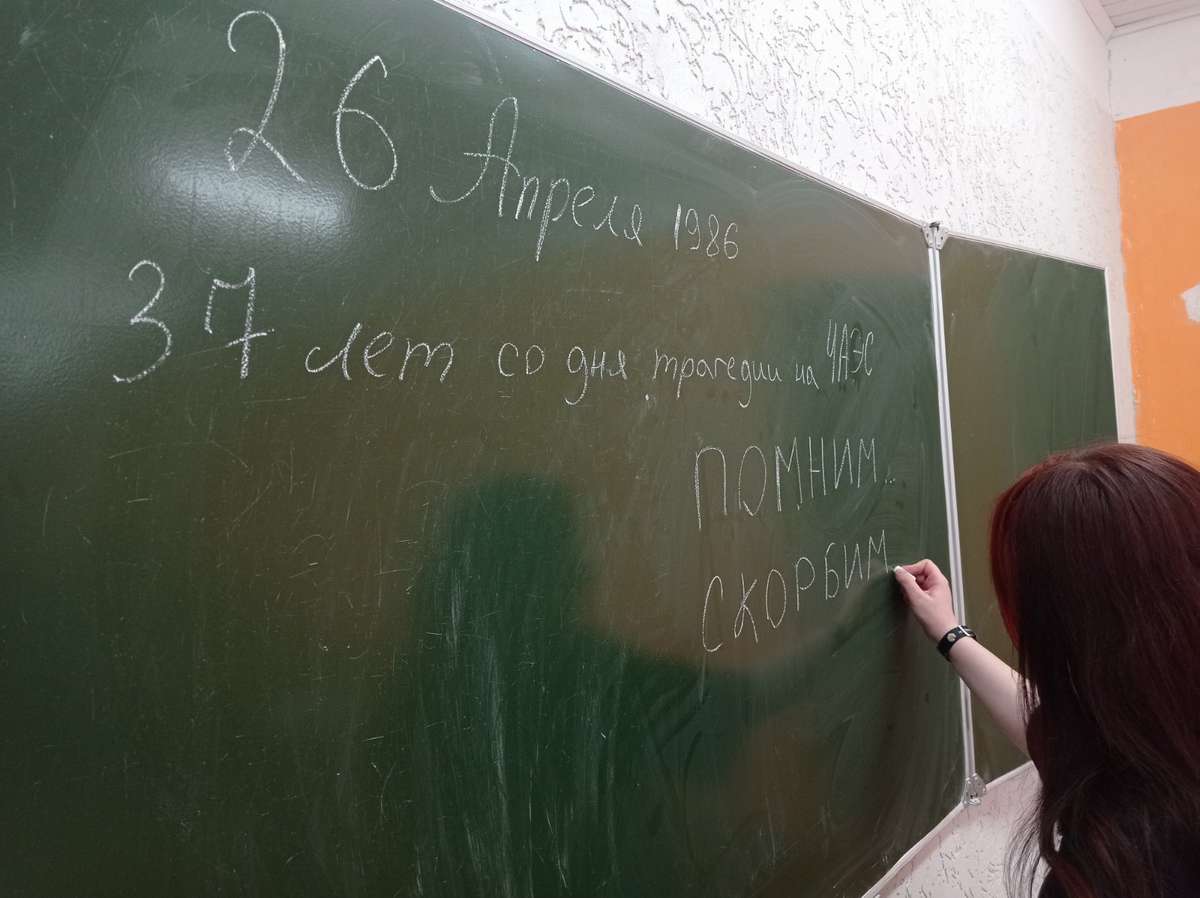 26 Апреля 1986
37 лет со дня трагедии на ЧАЭС
ПОМНИМ...
СКОРБИМ